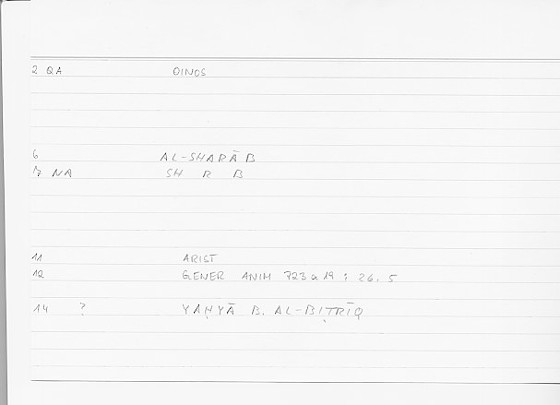 2 QA OINOS
6 AL-SHARĀB
7 NA SH R B
11 ARIST
12 GENER ANIM 723a19 : 26.5
14 ? YAḤYĀ B. AL-BIṬRĪQ